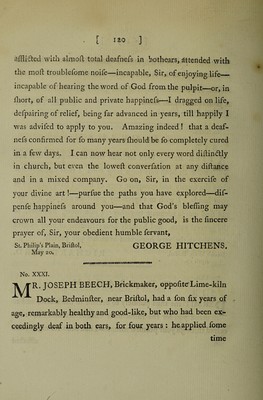 [ 120 ]
afflicted with almoſt total deafneſs in bothears, attended with
the moſt troubleſome noiſe—incapable, Sir, of enjoying life—
incapable of hearing the word of God from the pulpit—or, in
ſhort, of all public and private happineſs—I dragged on life,
deſpairing of relief, being far advanced in years, till happily I
was adviſed to apply to you. Amazing indeed! that a deaf-
neſs confirmed for ſo many years ſhould be ſo completely cured
in a few days. I can now hear not only every word diſtinctly
in church, but even the loweſt converſation at any diſtance
and in a mixed company. Go on, Sir, in the exerciſe of
your divine art!—purſue the paths you have explored—diſ-
penſe happineſs around you—and that God's bleſſing may
crown all your endeavours for the public good, is the ſincere
prayer of, Sir, your obedient humble ſervant,
St. Philip's Plain, Briſtol, GEORGE HITCHENS.
May 20.
No. XXXI.
MR. JOSEPH BEECH, Brickmaker, oppoſite Lime-kiln
Dock, Bedminſter, near Briſtol, had a ſon ſix years of
age, remarkably healthy and good-like, but who had been ex-
ceedingly deaf in both ears, for four years: he applied ſome
time